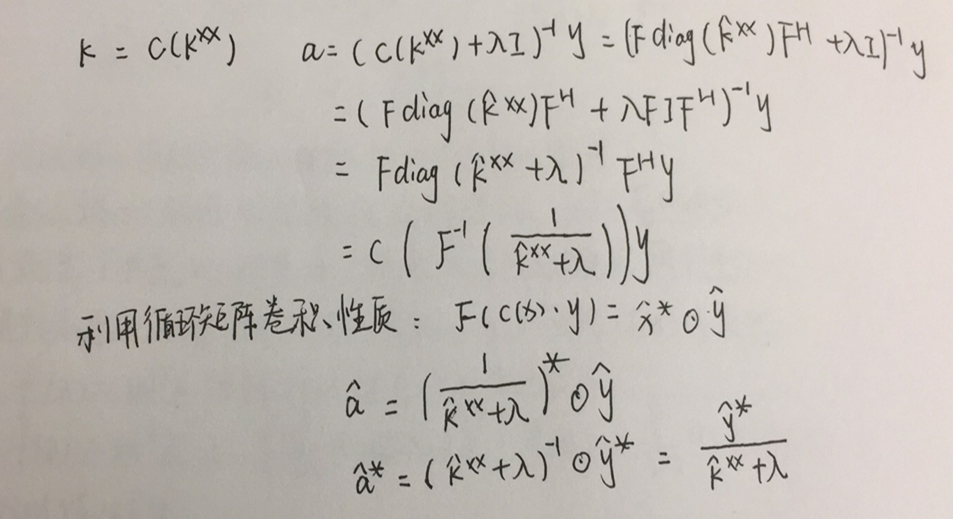 K = C(k^{xx})    a = (C(k^{xx}) + λI)^{-1} y = (F diag(k̂^{xx}) F^H + λI)^{-1} y
= (F diag(k̂^{xx}) F^H + λFIF^H)^{-1} y
= F diag(k̂^{xx} + λ)^{-1} F^H y
= C(F^{-1}(1/(k̂^{xx}+λ))) y
利用循环矩阵卷积性质: F(C(x)·y) = x̂* ⊙ ŷ
â = (1/(k̂^{xx}+λ))* ⊙ ŷ
â* = (k̂^{xx}+λ)^{-1} ⊙ ŷ* = ŷ*/(k̂^{xx}+λ)